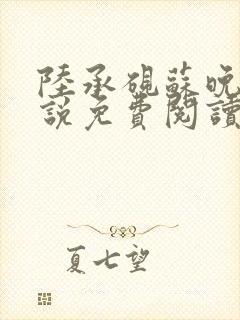 陸承硯蘇晚
說免費閱讀
夏七望